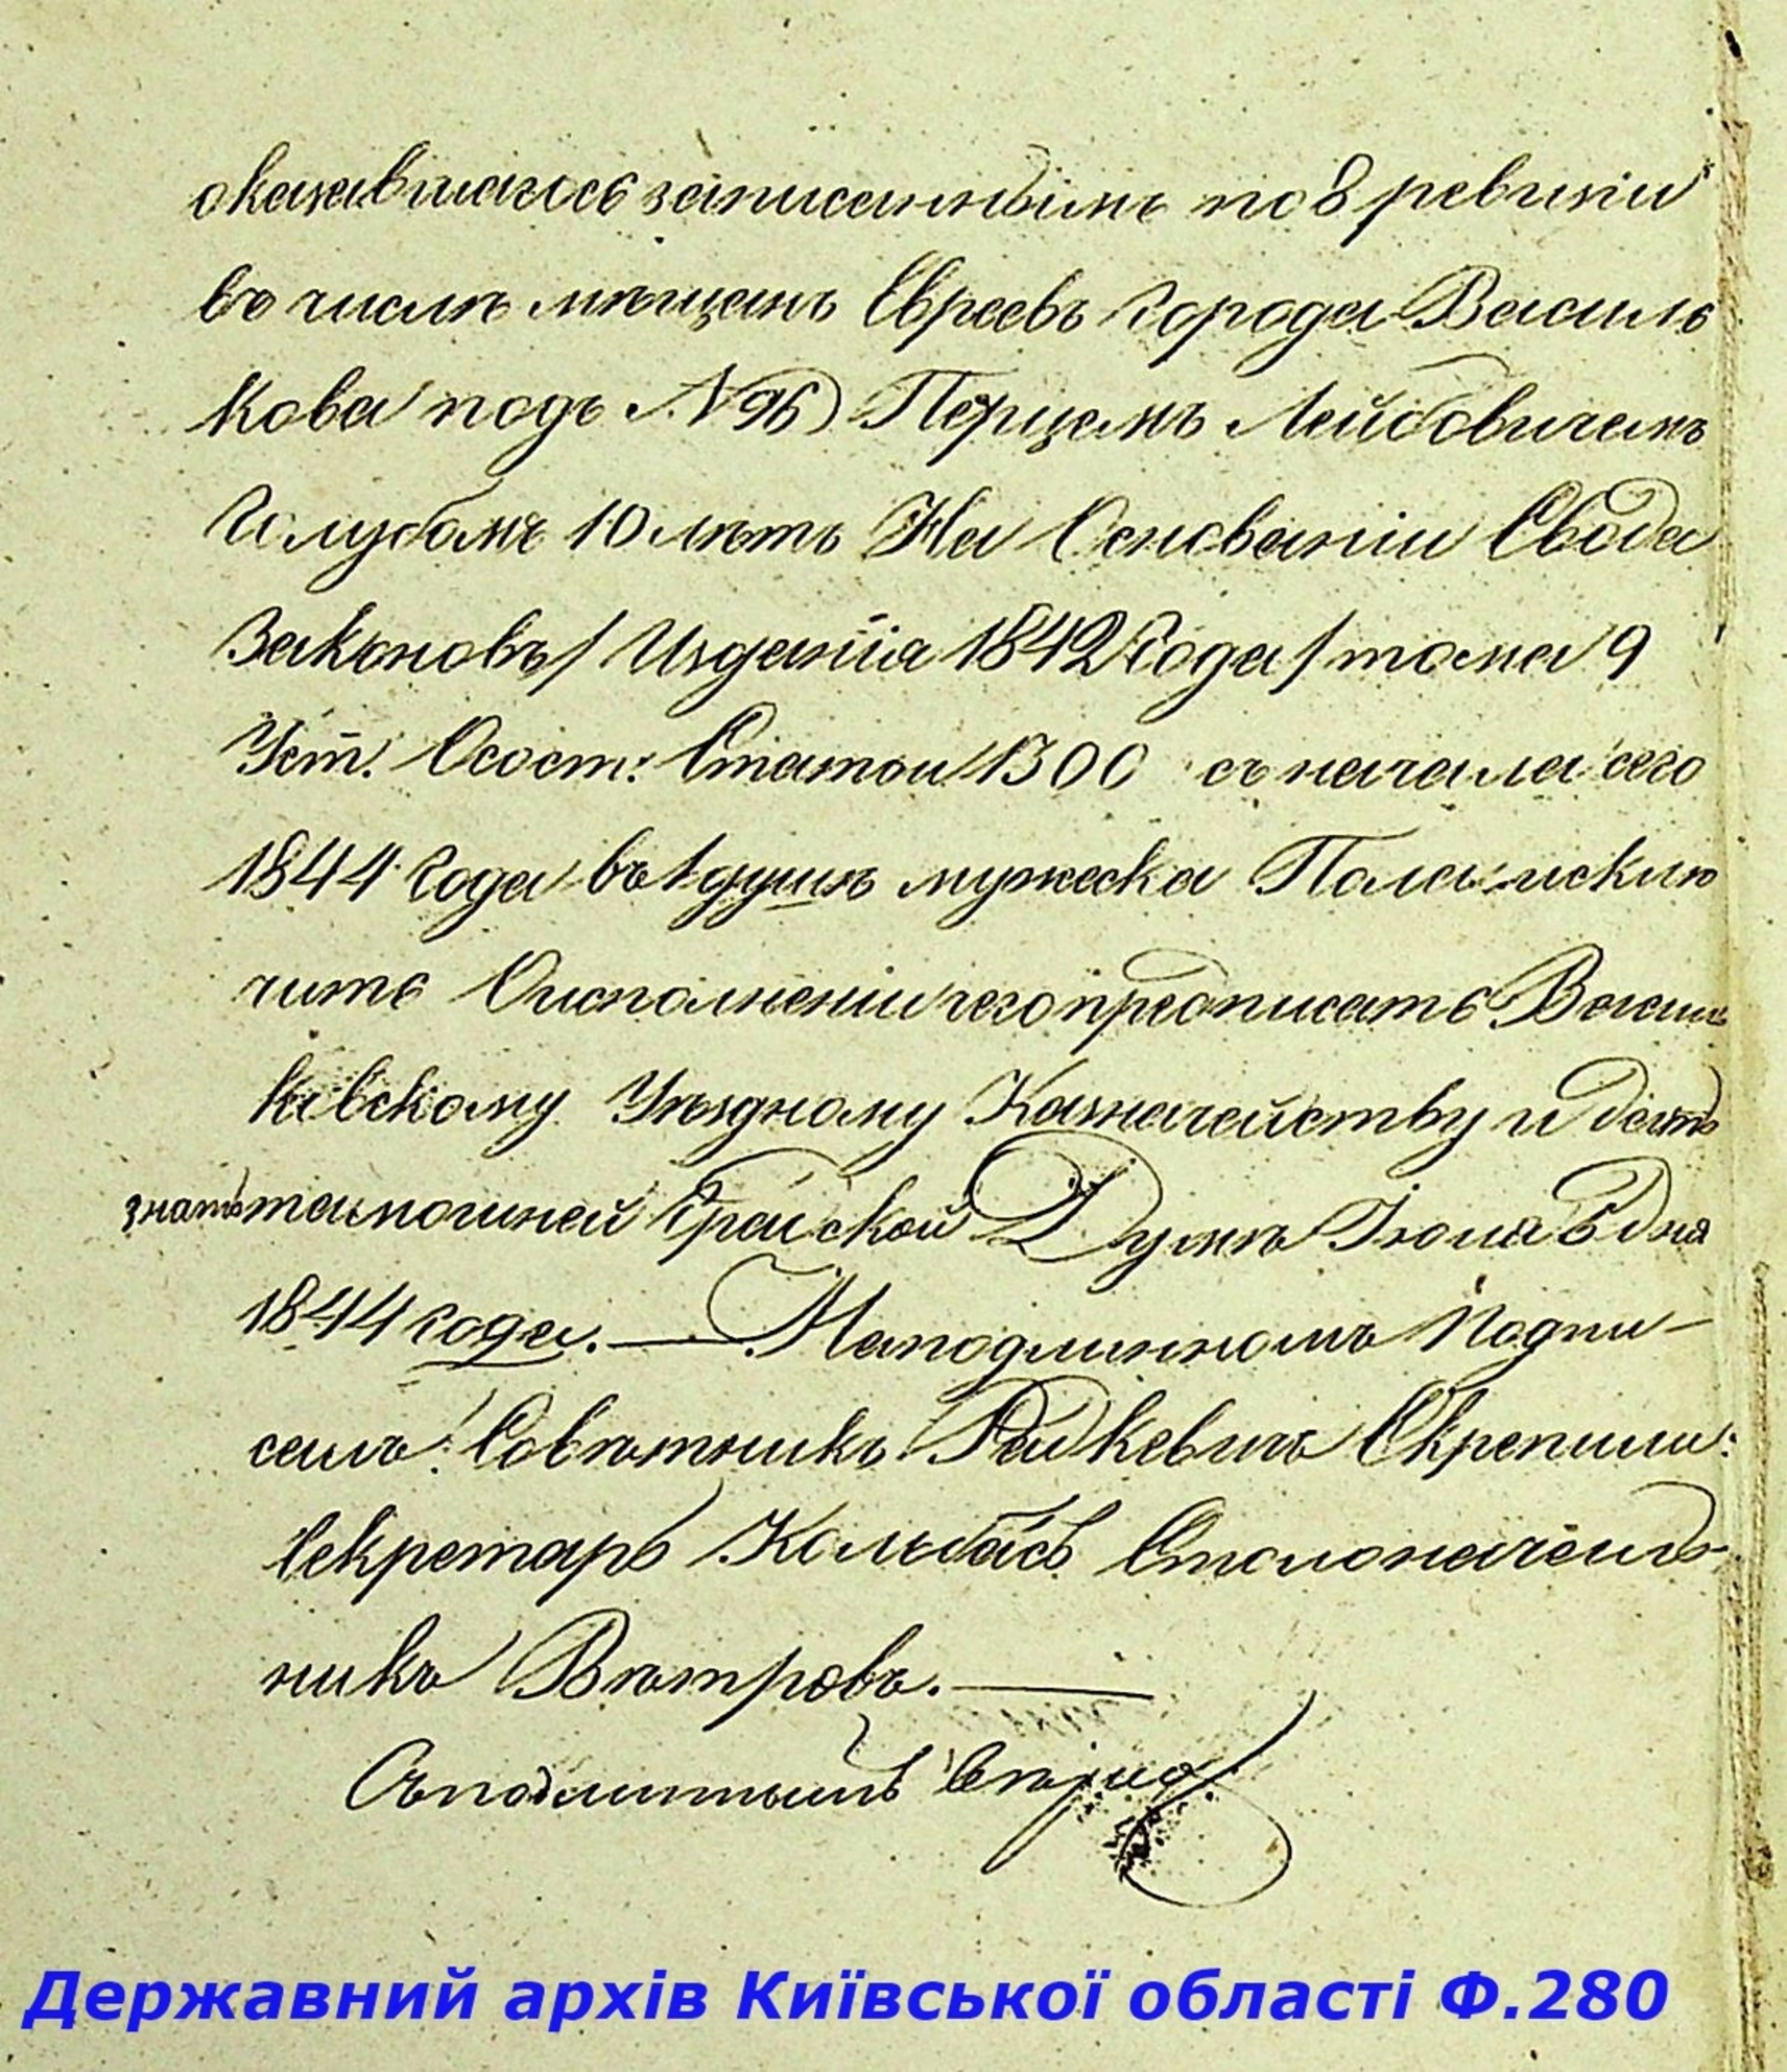 оказавшагось записаннымъ по 8 ревизіи
въ числѣ мѣщанъ Евреевъ города Василь
кова подъ №96) Перцемъ Лейбовичемъ
Голубомъ 10 лѣтъ На Основаніи Свода
Законовъ / Изданія 1842 Года / тома 9
Уст. Осост: Статьи 1300 съ начала сего
1844 Года въ 1 душѣ мужеска Пола исклю
чить О исполненіи чего предписать Василь
ковскому Уѣздному Казначейству и дать
знать тамошней Градской Думѣ Іюля 5 дня
1844 года. — На подлинномъ Подпи-
салъ: Совѣтникъ Радкевичъ Скрепили:
Секретарь Кольбасъ Столоначаль-
никъ Вѣтровъ. —
Съ подлиннымъ вѣрно
Державний архів Київської області Ф.280